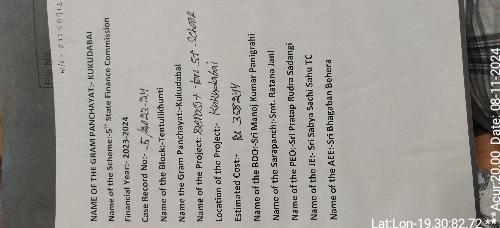 File No
NAME OF THE GRAM PANCHAYAT:- KUKUDABAI
Name of the Scheme:-5th State Finance Commission
Financial Year:- 2023-2024
Case Record No:- 5/2023-24
Name of the Block:-Tentulikhunti
Name the Gram Panchayat:-Kukudabai
Name of the Project:
Location of the Project:- Kukudabai
Estimated Cost:- Rs 358244
Name of the BDO:-Sri Manoj Kumar Panigrahi
Name of the Sarapanch:-Smt. Ratana Jani
Name of the PEO:-Sri Pratap Rudra Sadangi
Name of the JE:- Sri Sabya Sachi Sahu TC
Name of the AEE:-Sri Bhagaban Behera
Date: 08-11-2024
Acur20.00
Lat:Lon-19.30:82.72